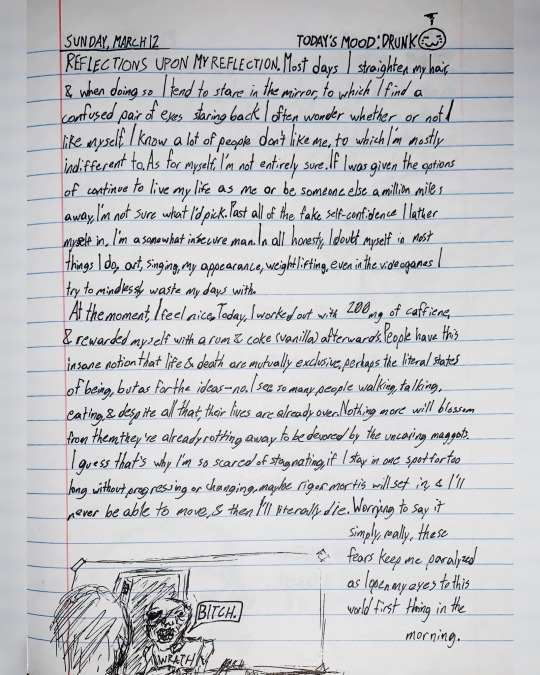 SUNDAY, MARCH 12
TODAY'S MOOD: DRUNK
REFLECTIONS UPON MY REFLECTION. Most days I straighten my hair,
& when doing so I tend to stare in the mirror, to which I find a
confused pair of eyes staring back. I often wonder whether or not I
like myself. I know a lot of people don't like me, to which I'm mostly
indifferent to. As for myself, I'm not entirely sure. If I was given the options
of continue to live my life as me or be someone else a million miles
away, I'm not sure what I'd pick. Past all of the fake self-confidence I lather
myself in, I'm a somewhat insecure man. In all honesty, I doubt myself in most
things I do, art, singing, my appearance, weightlifting, even in the videogames I
try to mindlessly waste my days with.
At the moment, I feel nice. Today, I worked out with 200mg of caffiene,
& rewarded myself with a rum & coke (vanilla) afterwards. People have this
insane notion that life & death are mutually exclusive, perhaps the literal states
of being, but as for the ideas—no. I see so many people walking, talking,
eating, & despite all that their lives are already over. Nothing more will blossom
from them, they're already rotting away to be devored by the uncaring maggots.
I guess that's why I'm so scared of stagnating, if I stay in one spot for too
long without progressing or changing, maybe rigor mortis will set in, & I'll
never be able to move, & then I'll literally die. Worrying to say it
simply, really, these
fears keep me paralyzed
as I open my eyes to this
world first thing in the
morning.
BITCH.
WRATH